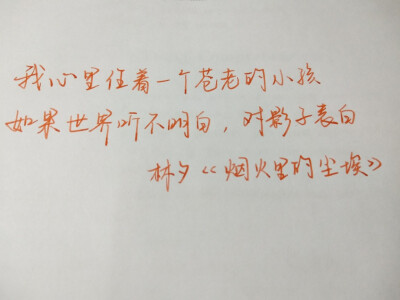 我心里住着一个苍老的小孩
如果世界听不明白，对影子表白
林夕《烟火里的尘埃》